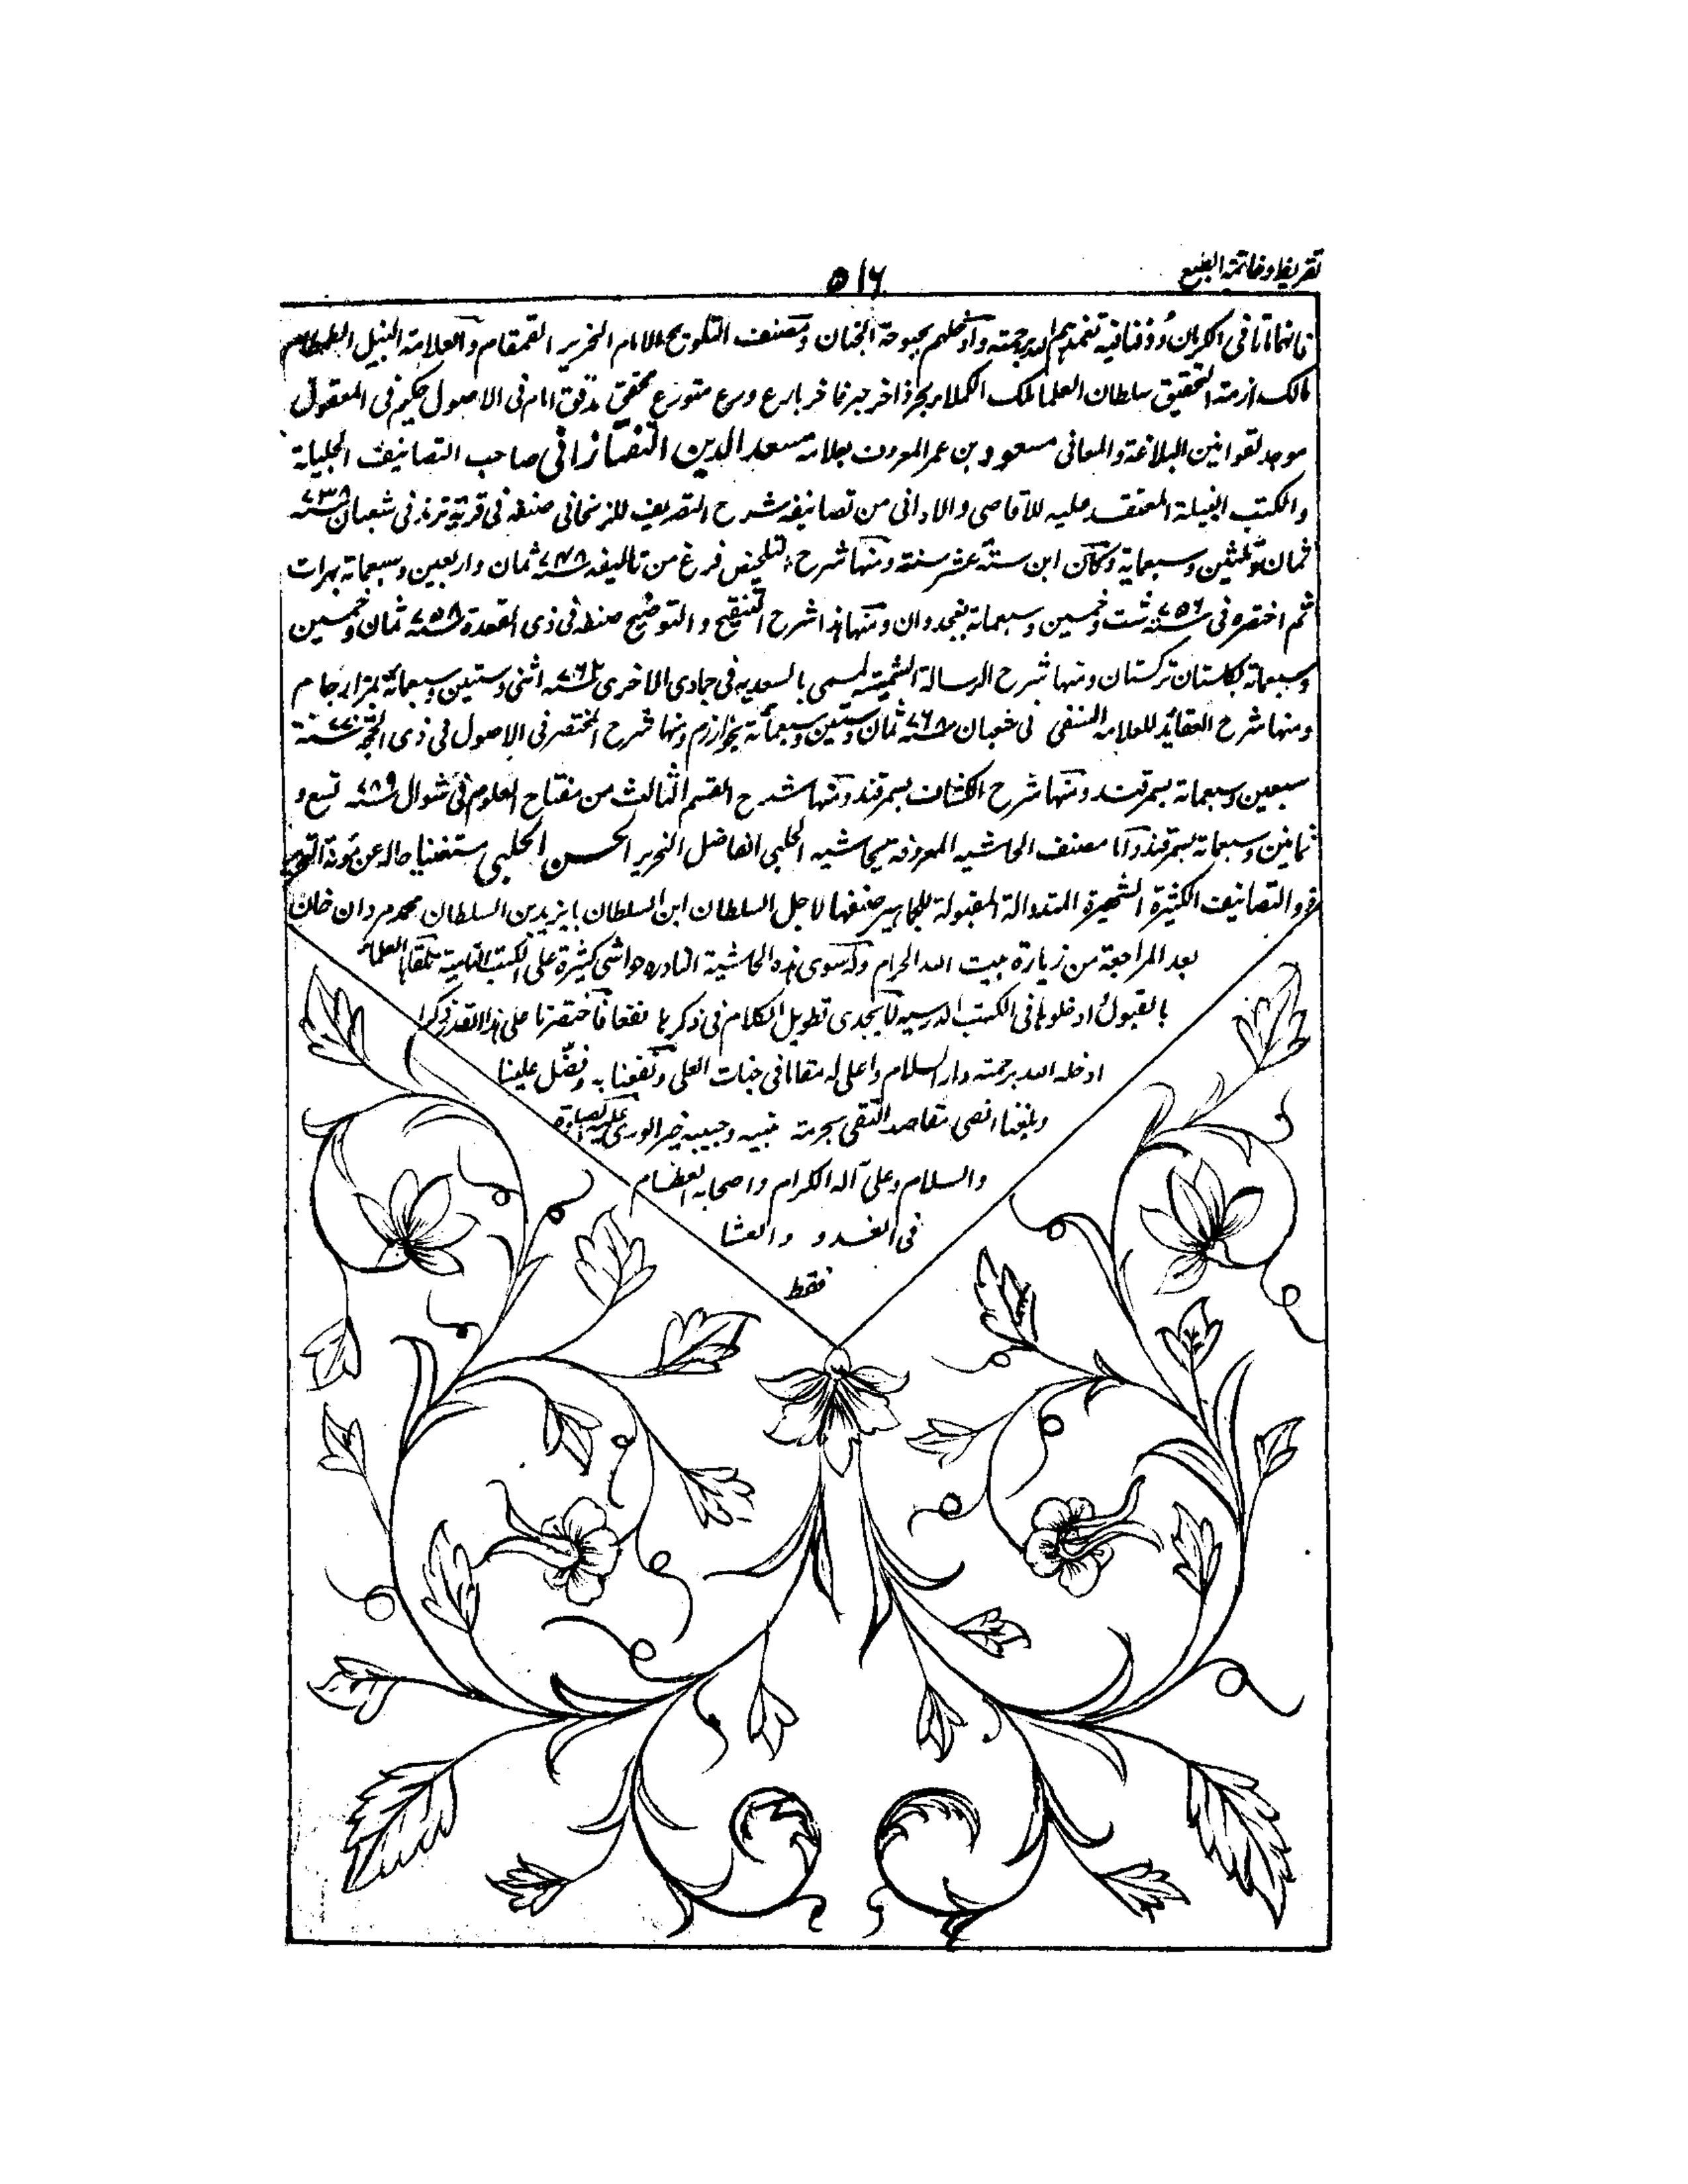 تقريظ وخاتمة الطبع
٥١٦
فانهما ماتا فى الكرمان ودفنا فيه تغمدهم الله برحمته وادخلهم بحبوحة الجنان ومصنف التلويح الامام النحرير القمقام والعلامة النبيل الطمطام
مالك ازمة التحقيق سلطان العلما ملك الكملا بحر زاخر حبر فاخر بارع ورع متورع محقق مدقق امام فى الاصول حكيم فى المعقول
موجد لقوانين البلاغة والمعانى مسعود بن عمر المعروف بعلامه سعد الدين التفتازانى صاحب التصانيف الجليلة
والكتب النبيلة المعتقد عليه للاقاصى والادانى من تصانيفه شرح التصريف للزنجانى صنفه فى قرية ترمذ فى شعبان سنه ٧٣٨
ثمان وثلثين وسبعماية وكان ابن ستة عشر سنة ومنها شرح التلخيص فرغ من تاليفه سنه ٧٤٨ ثمان واربعين وسبعماية بهرات
ثم اختصره فى سنه ٧٥٦ ست وخمسين وسبعماية بغجدوان ومنها هذا شرح التنقيح والتوضيح صنفه فى ذى القعدة سنه ٧٥٨ ثمان وخمسين
وسبعماية بكلستان تركستان ومنها شرح الرسالة الشمسية المسمى بالسعديه فى جمادى الاخرى سنه ٧٦٢ اثنى وستين وسبعماية بمزار جام
ومنها شرح العقائد للعلامه النسفى فى شعبان سنه ٧٦٨ ثمان وستين وسبعماية بخوارزم ومنها شرح المختصر فى الاصول فى ذى الحجه سنه ٧٧٠
سبعين وسبعماية بسمرقند ومنها شرح الكشاف بسمرقند ومنها شرح القسم الثالث من مفتاح العلوم فى شوال سنه ٧٨٩ تسع و
ثمانين وسبعماية بسمرقند واما مصنف الحاشيه المعروفه بحاشيه الچلپى الفاضل النحرير الحسن الچلپى مستغنيا حاله عن مؤنة
والتصانيف الكثيرة الشهيرة المتداولة المقبولة للجماهير صنفها لاجل السلطان ابن السلطان بايزيد بن السلطان محمد مردان خان
بعد المراجعة من زيارة بيت الله الحرام وله سوى هذه الحاشية النادره حواشى كثيرة على الكتب النامية تلقاها العلماء
بالقبول وادخلوها فى الكتب الدرسيه لا يجدى تطويل الكلام فى ذكرها نفعا فاختصرنا على هذا القدر ذكرا
ادخله الله برحمته دار السلام واعلى له مقاما فى جنات العلى ونفعنا به وفضّل علينا
وبلغنا اقصى مقاصد التقى بحرمة نبيه وحبيبه خير الورى عليه الصلوة
والسلام وعلى آله الكرام واصحابه العظام
فى الغدو والعشا
فقط